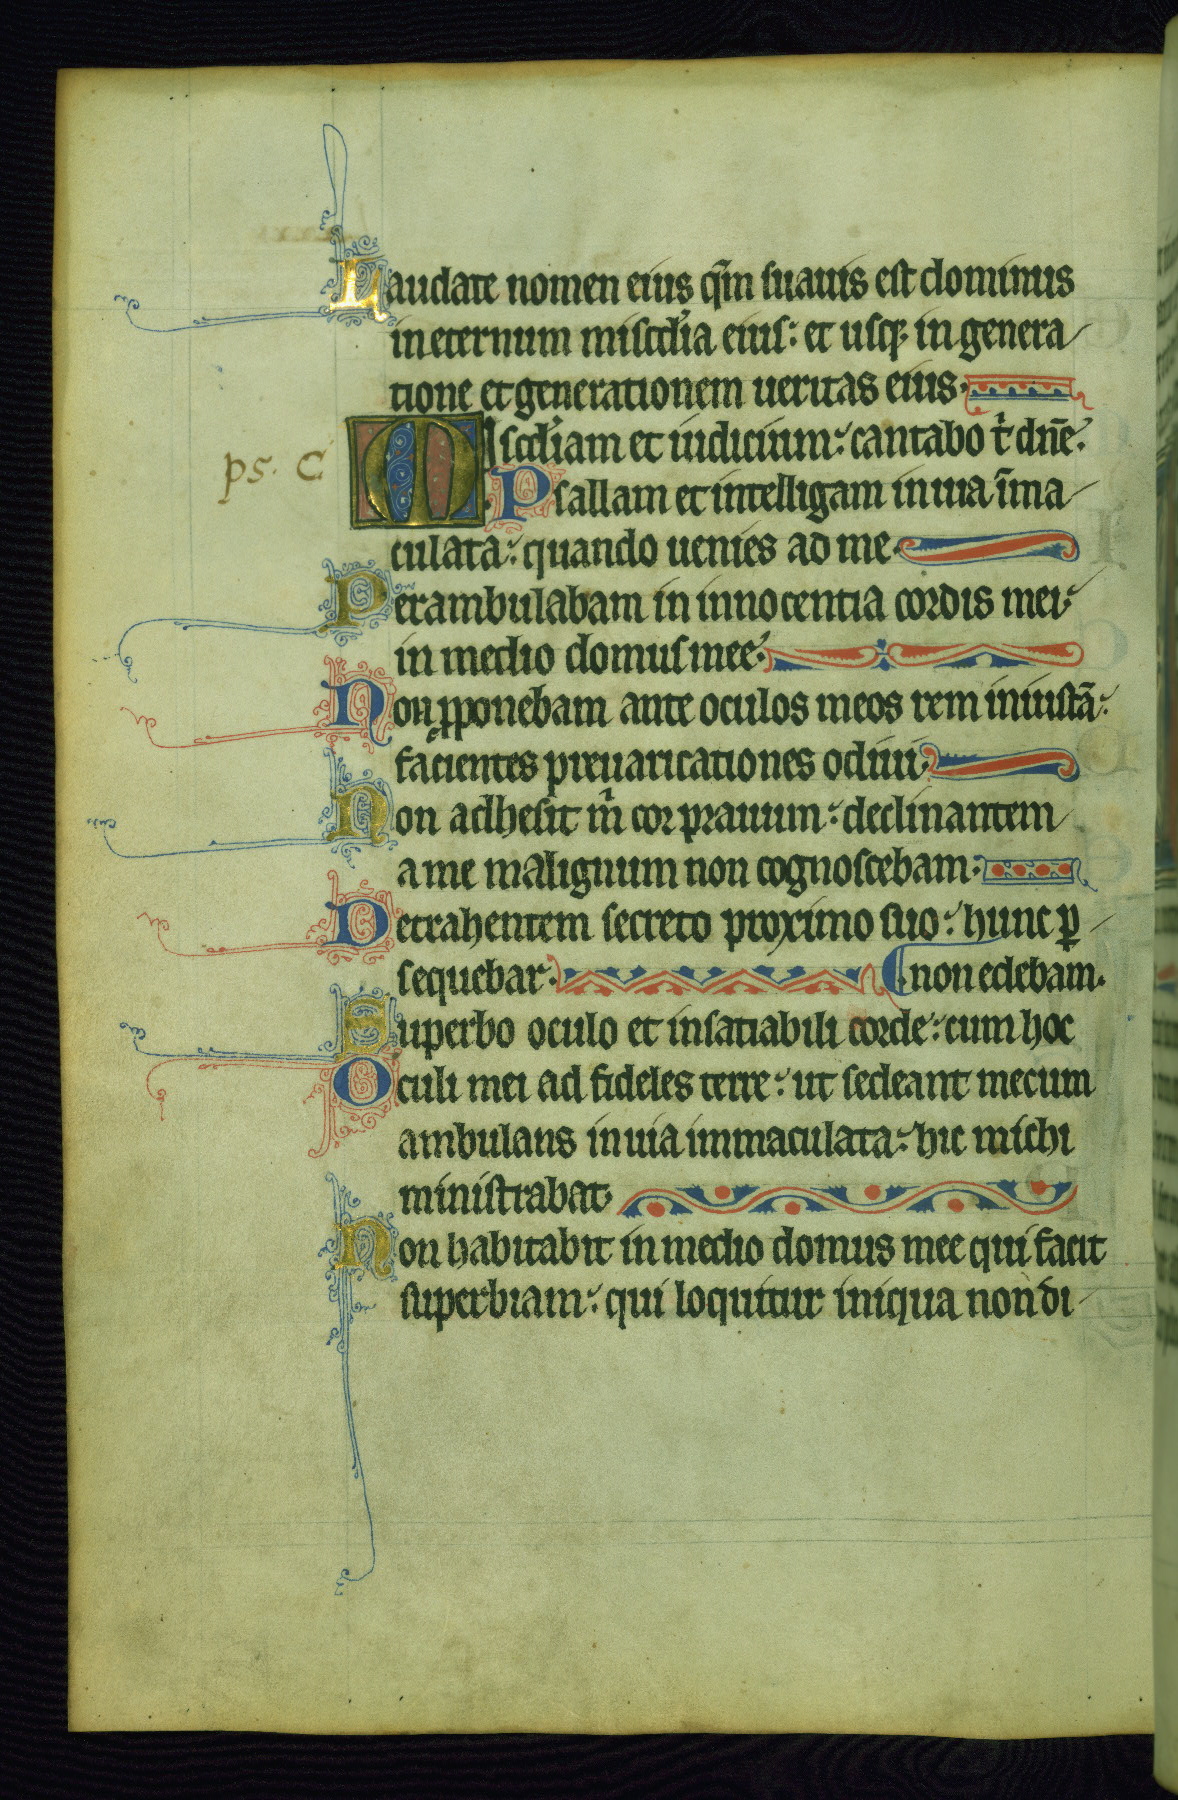 Laudate nomen eius qm̄ suauis est dominus
in eternum misc̄dia eius: et usq; in genera
tione et generationem ueritas eius.
ps. C
Misc̄diam et iudicium: cantabo t̉ dn̄e.
Psallam et intelligam in uia īma
culata: quando uenies ad me.
Perambulabam in innocentia cordis mei:
in medio domus mee.
Non ꝓponebam ante oculos meos rem iniustā:
facientes preuaricationes odiui.
Non adhesit m̉ cor prauum: declinantem
a me malignum non cognoscebam.
Detrahentem secreto proximo suo: hunc ꝑ
sequebar. non edebam.
Superbo oculo et insatiabili corde: cum hoc
Oculi mei ad fideles terre: ut sedeant mecum
ambulans in uia immaculata: hic michi
ministrabat.
Non habitabit in medio domus mee qui facit
superbiam: qui loquitur iniqua non di